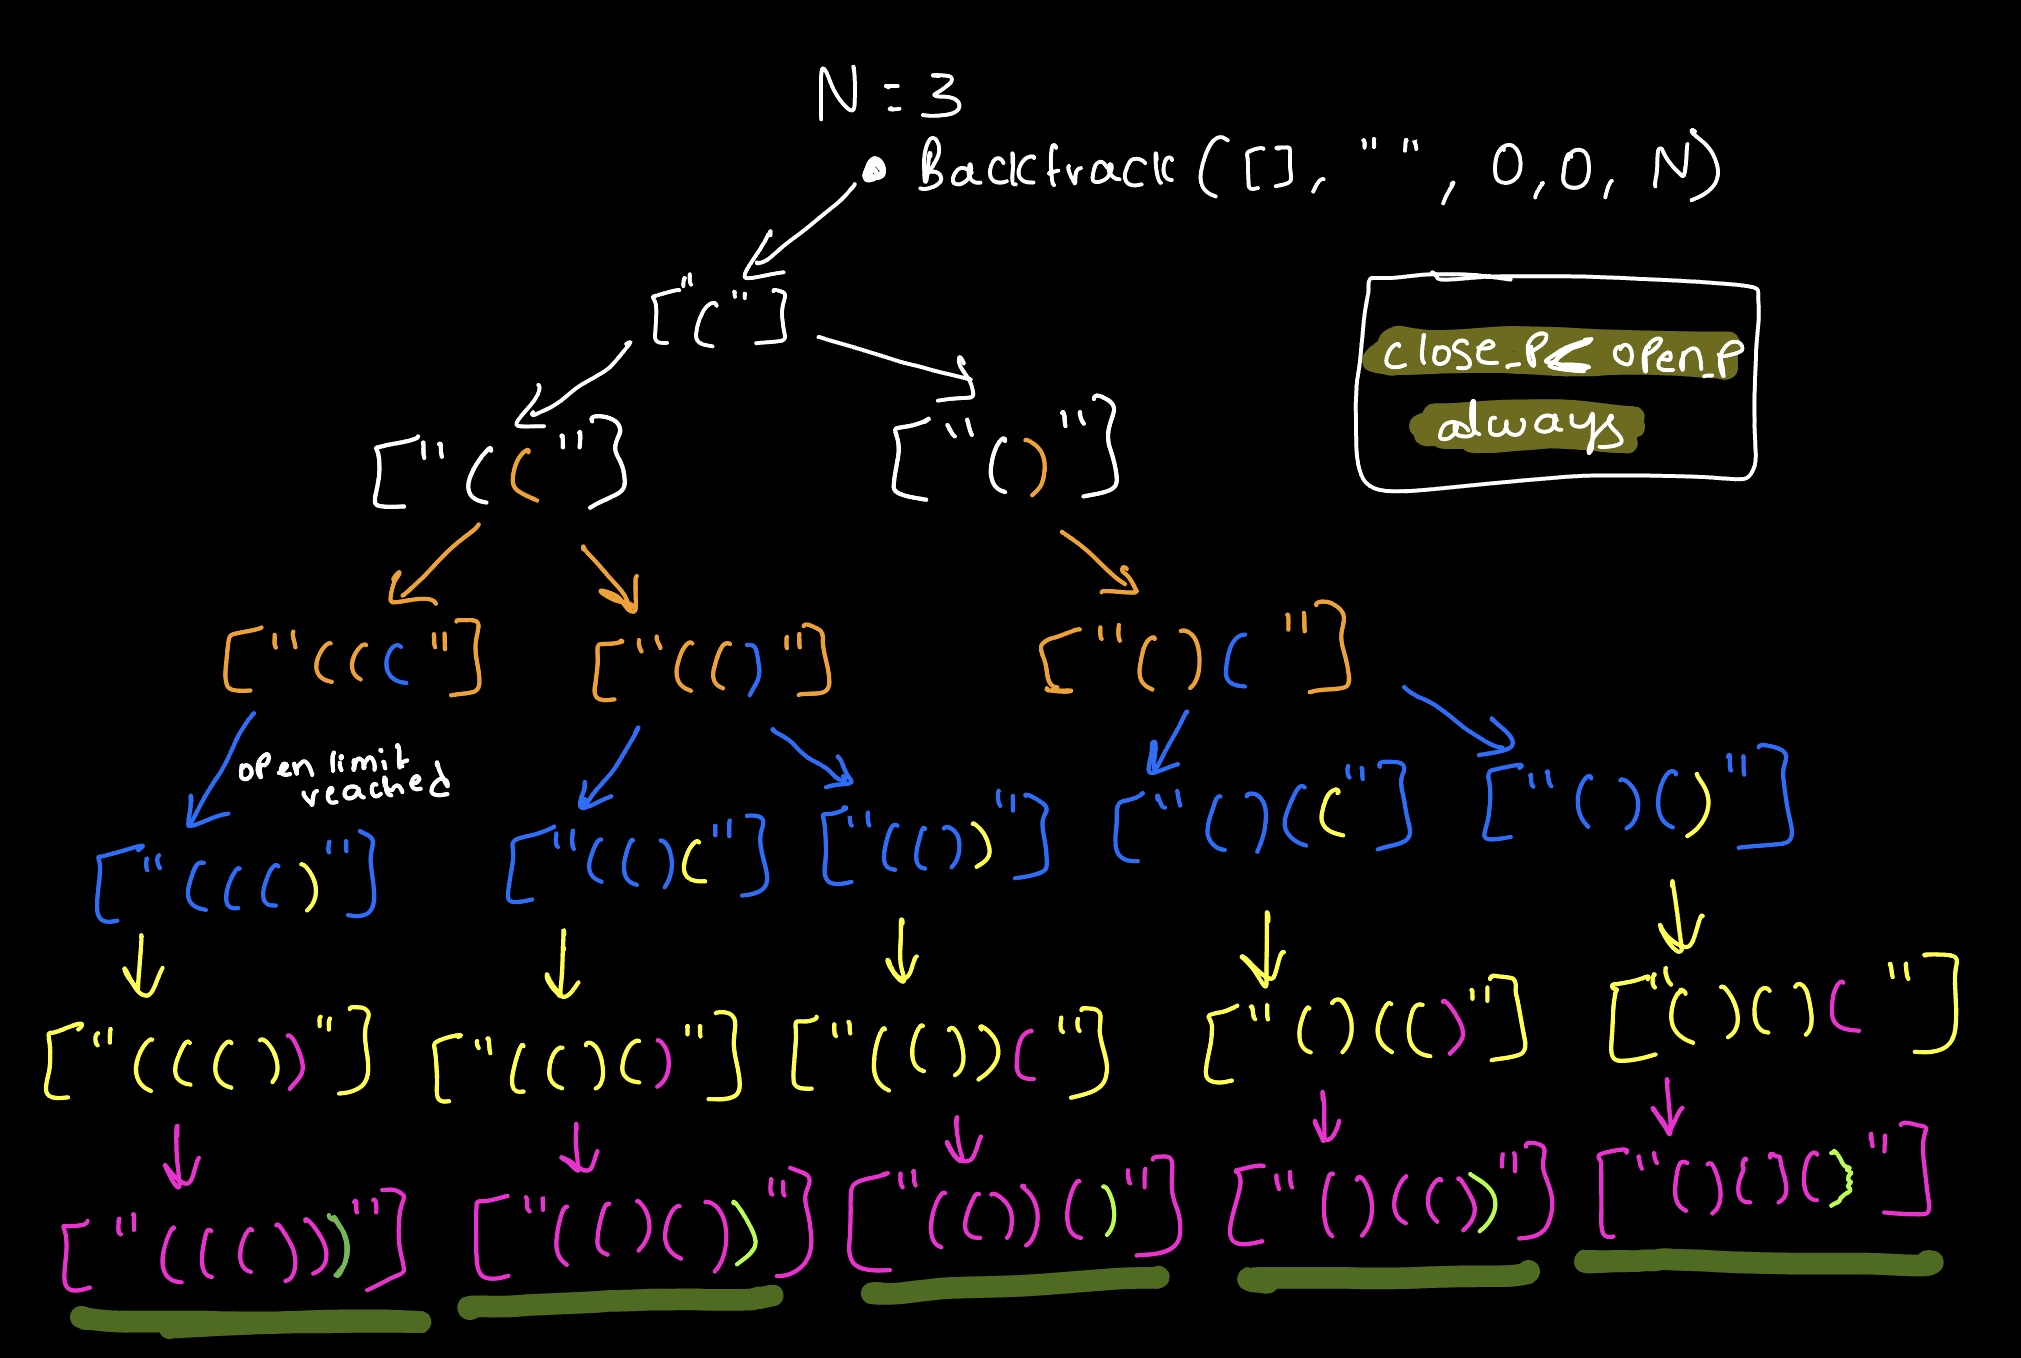 N = 3
Backtrack([], " ", 0,0, N)
["("]
close_P< open_P
always
["(("]
["()"]
["((("]
["(()"]
["()("]
open limit
reached
["((()"]
["(()("]
["(())"]
["()(("]
["()()"]
["((())"]
["(()()"]
["(())("]
["()(()"]
["()()("]
["((()))"]
["(()())"]
["(())()"]
["()(())"]
["()()()"]